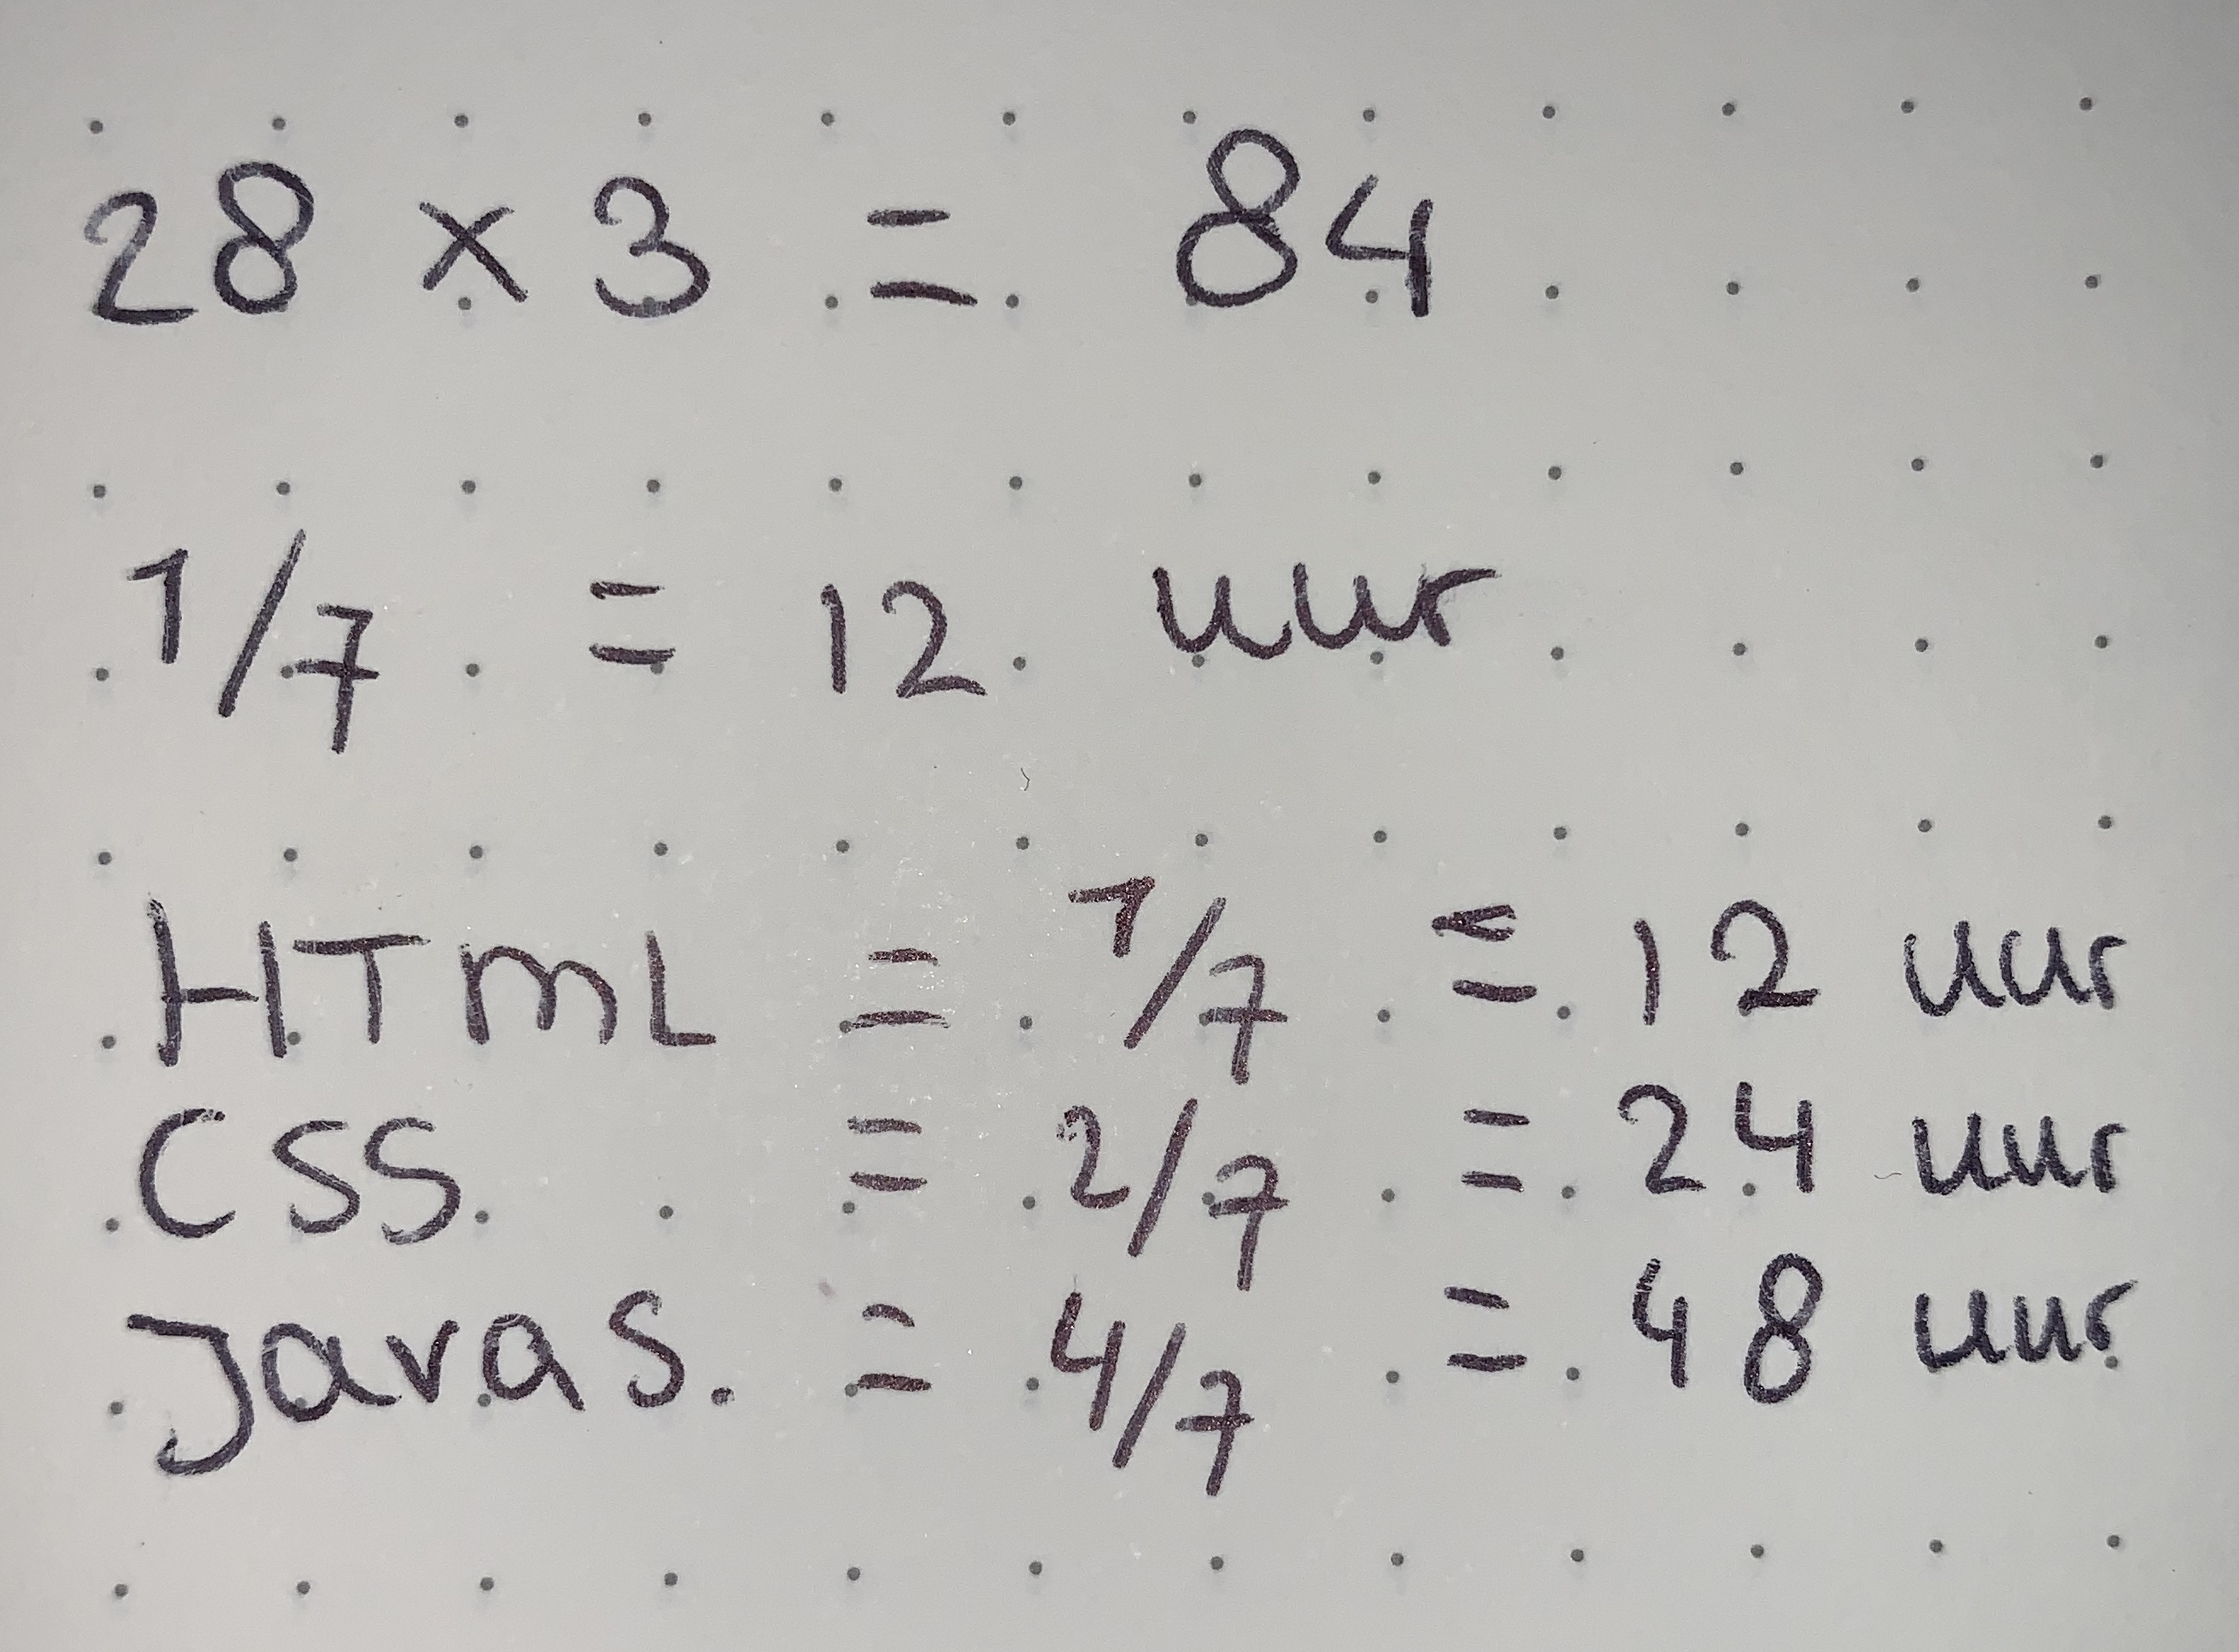 28 x 3 = 84
1/7 = 12 uur
HTML = 1/7 = 12 uur
CSS = 2/7 = 24 uur
JavaS. = 4/7 = 48 uur